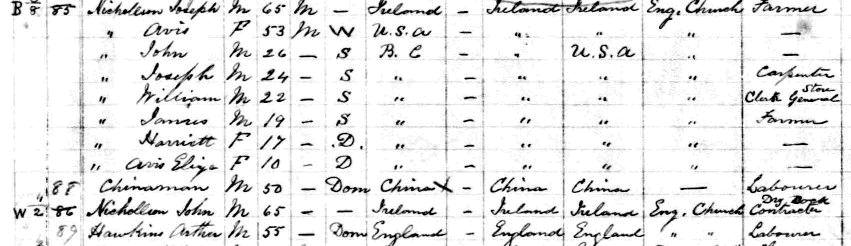 B 2/8 85 Nicholson Joseph M 65 M — Ireland — Ireland Ireland Eng. Church Farmer
" Avis F 53 M W U.S.A — " " " —
" John M 26 — S B.C — " U.S.A " —
" Joseph M 24 — S " — " " " Carpenter
" William M 22 — S " — " " " Clerk General Store
" James M 19 — S " — " " " Farmer
" Harriett F 17 — D. " — " " " —
" Avis Eliza F 10 — D " — " " " —
" 88 Chinaman M 50 — Dom China X — China China — Labourer
W 2 86 Nicholson John M 65 — — Ireland — Ireland Ireland Eng. Church Dry Dock Contractor
89 Hawkins Arther M 55 — Dom England — England England " " Labourer